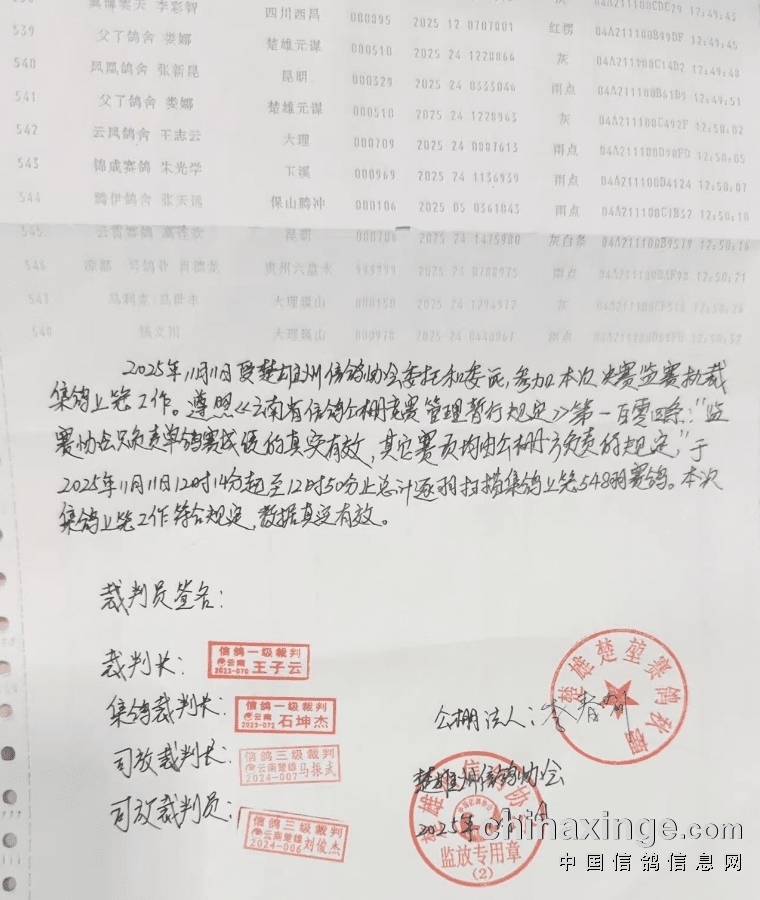 奥博云天 李彩智 四川西昌 000095 2025 12 0707001 灰 04A211100CDC29 12:49:43
539 父丁鸽舍 娄娜 楚雄元谋 000510 2025 24 1220866 红楞 04A211100B99DF 12:49:45
540 凤凰鸽舍 张新昆 昆明 000329 2025 24 0333046 灰 04A211100C14D2 12:49:48
541 父丁鸽舍 娄娜 楚雄元谋 000510 2025 24 1220963 雨点 04A211100B61D9 12:49:51
542 云凤鸽舍 王志云 大理 000709 2025 24 0007613 灰 04A211100C492F 12:50:02
543 锦成赛鸽 朱光学 玉溪 000969 2025 24 1136939 雨点 04A211100D90FD 12:50:05
544 腾伊鸽舍 张天 保山腾冲 000106 2025 05 0361043 雨点 04A211100D4124 12:50:07
545 昆明 000706 2025 24 1475900 雨点 04A211100C1B32 12:50:10
546 贵州六盘水 999999 2025 24 灰白条 04A211100B9579 12:50:16
547 大理巍山 000150 2025 24 1294977 雨点 12:50:21
548 杨文川 大理巍山 000970 2025 24 0440867 灰 12:50:26
雨点 12:50:37
2025年11月11日受楚雄州信鸽协会委托和委派,参加本次决赛监赛执裁
集鸽上笼工作。遵照《云南省信鸽公棚竞赛管理暂行规定》第一百零四条:"监
赛协会只负责单鸽赛成绩的真实有效,其它赛项均由公棚方负责的规定,"于
2025年11月11日12时14分起至12时50分止总计逐羽扫描集鸽上笼548羽赛鸽。本次
集鸽上笼工作符合规定,数据真实有效。
裁判员签名:
裁判长: 信鸽一级裁判 云南 2023-070 王子云
集鸽裁判长: 信鸽一级裁判 云南 2023-072 石坤杰
司放裁判长: 信鸽三级裁判 云南楚雄 2024-007 马振武
司放裁判员: 信鸽三级裁判 云南楚雄 2024-006 刘俊杰
公棚法人:
楚雄楚堃赛鸽公棚
楚雄州信鸽协会
2025年11月11日
楚雄州信鸽协会
监放专用章
(2)
chinaxinge.com
中国信鸽信息网